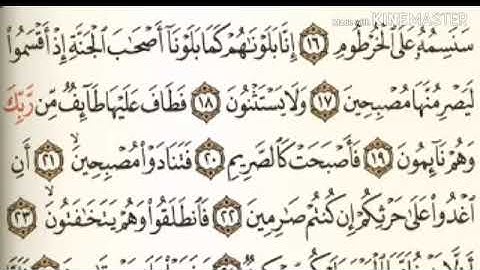 MADE WITH
KINEMASTER
سَنَسِمُهُۥ عَلَى ٱلْخُرْطُومِ ١٦ إِنَّا بَلَوْنَٰهُمْ كَمَا بَلَوْنَآ أَصْحَٰبَ ٱلْجَنَّةِ إِذْ أَقْسَمُوا۟
لَيَصْرِمُنَّهَا مُصْبِحِينَ ١٧ وَلَا يَسْتَثْنُونَ ١٨ فَطَافَ عَلَيْهَا طَآئِفٌ مِّن رَّبِّكَ
وَهُمْ نَآئِمُونَ ١٩ فَأَصْبَحَتْ كَٱلصَّرِيمِ ٢٠ فَتَنَادَوْا۟ مُصْبِحِينَ ٢١ أَنِ
ٱغْدُوا۟ عَلَىٰ حَرْثِكُمْ إِن كُنتُمْ صَٰرِمِينَ ٢٢ فَٱنطَلَقُوا۟ وَهُمْ يَتَخَٰفَتُونَ ٢٣